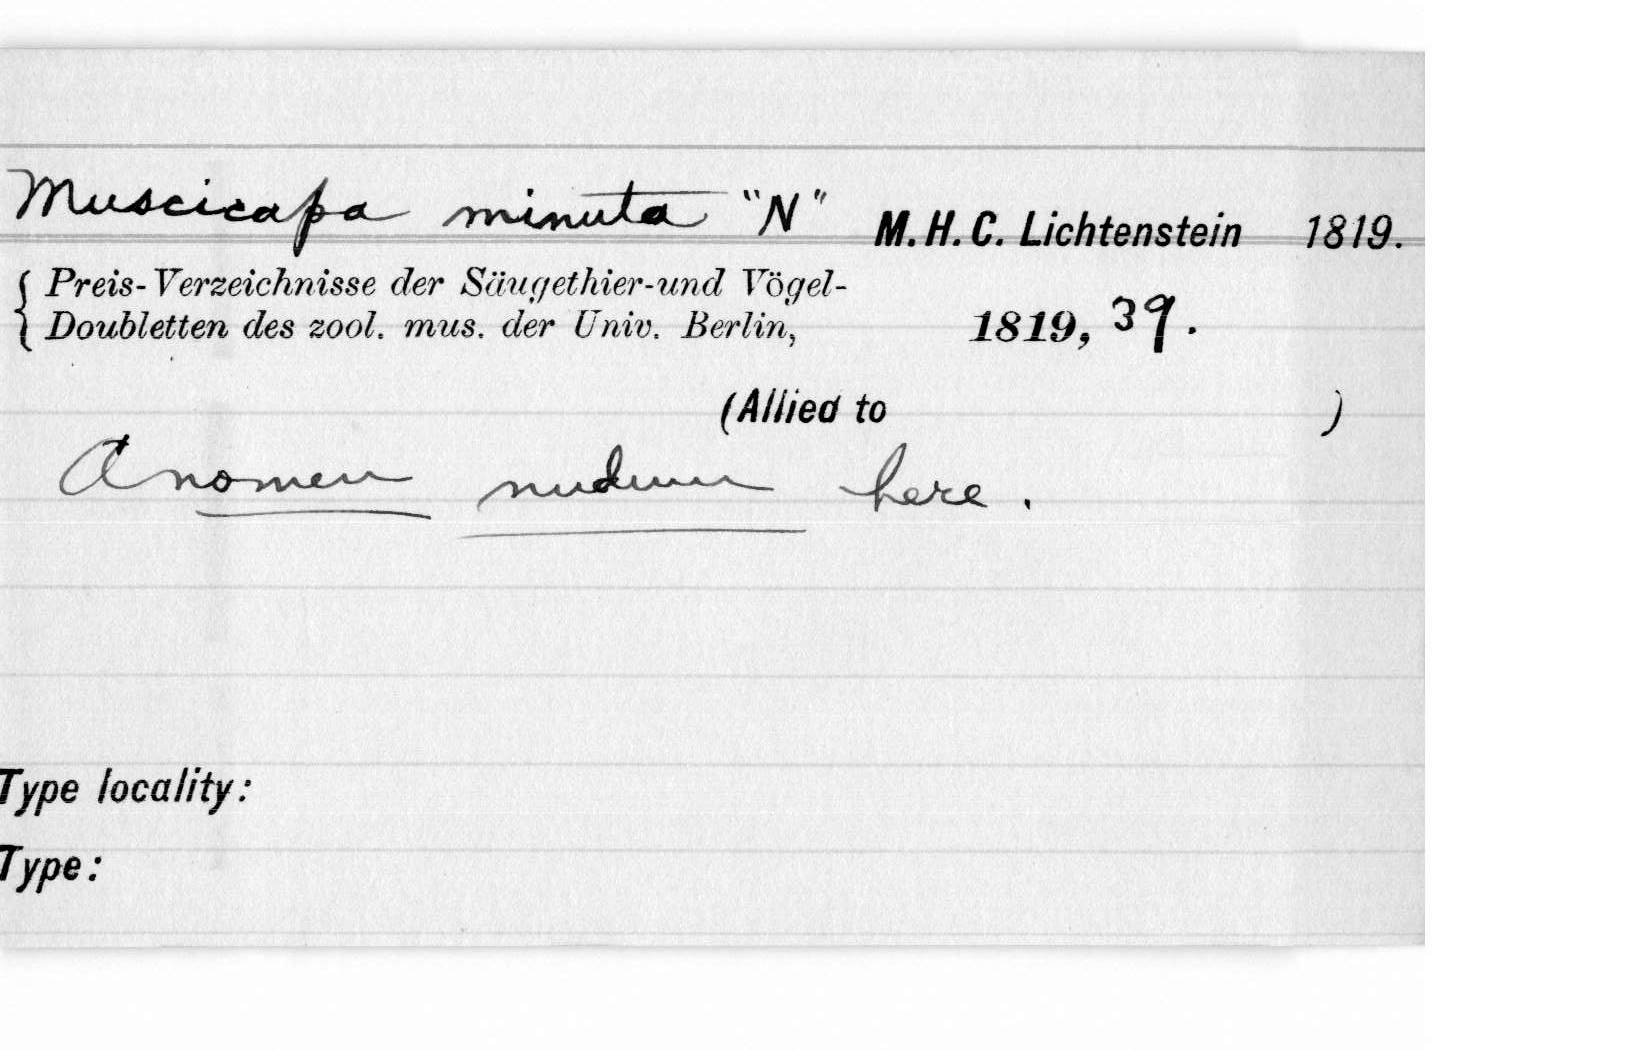 Muscicapa minuta "N" M. H. C. Lichtenstein 1819.
{ Preis-Verzeichnisse der Säugethier-und Vögel-
Doubletten des zool. mus. der Univ. Berlin, 1819, 39.
(Allied to )
A nomen nudum here.
Type locality:
Type: